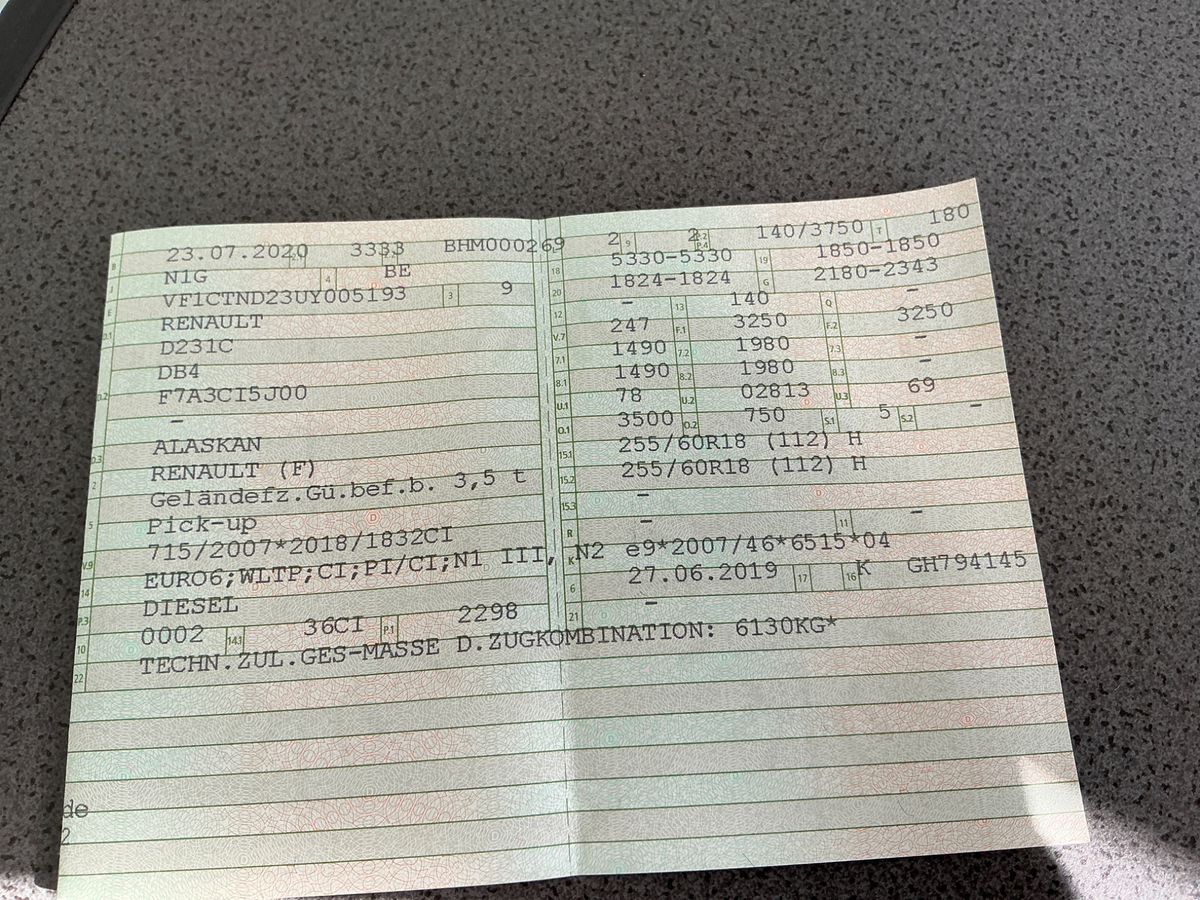 B 23.07.2020 2.1 3333 BHM000269
J N1G 4 BE
E VF1CTND23UY005193 3 9
D.1 RENAULT
D231C
D.2 DB4
F7A3CI5J00
–
D.3 ALASKAN
2 RENAULT (F)
Geländefz.Gü.bef.b. 3,5 t
5 Pick-up
V.9 715/2007*2018/1832CI
14 EURO6;WLTP;CI;PI/CI;N1 III, N2
P.3 DIESEL
10 0002 14.1 36CI P.1 2298
22 TECHN.ZUL.GES-MASSE D.ZUGKOMBINATION: 6130KG*
2 9 2 P.2 P.4 140/3750 T 180
18 5330-5330 19 1850-1850
20 1824-1824 G 2180-2343
12 – 13 140 Q –
V.7 247 F.1 3250 F.2 3250
7.1 1490 7.2 1980 7.3 –
8.1 1490 8.2 1980 8.3 –
U.1 78 U.2 02813 U.3 69
O.1 3500 O.2 750 S.1 5 S.2 –
15.1 255/60R18 (112) H
15.2 255/60R18 (112) H
15.3 –
R – 11 –
K e9*2007/46*6515*04
6 27.06.2019 17 K 16 GH794145
21 –
de
2